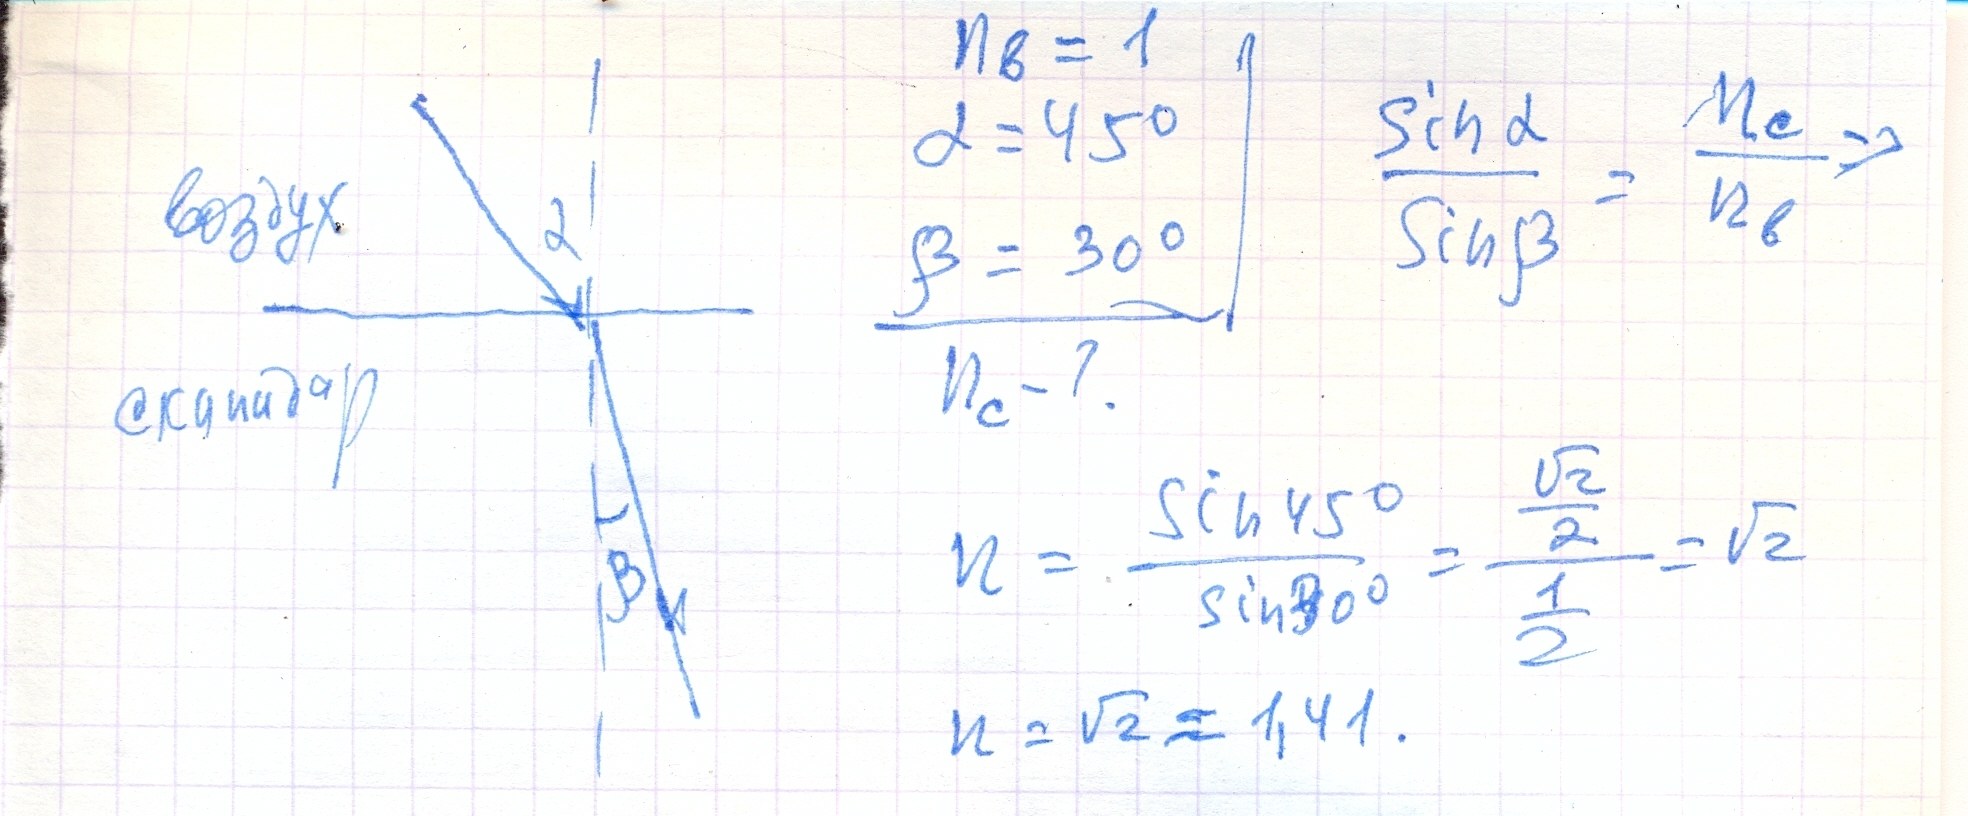 воздух
α
скипидар
β
nв = 1
α = 45°
β = 30°
nс - ?
sin α / sin β = nс / nв =>
n = sin 45° / sin 30° = (√2/2) / (1/2) = √2
n = √2 ≈ 1,41.